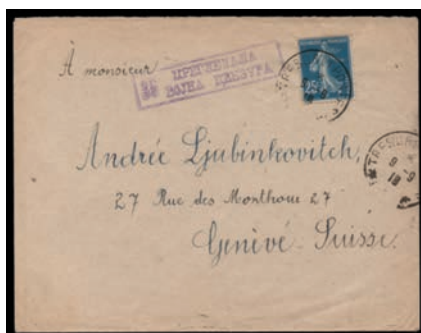 À monsieur
ПРЕГЛЕДАНА
ВОЈНА ЦЕНЗУРА
25
Andrée Ljubinkovitch,
27 Rue des Monthoux 27
Genivé-Suisse.
TRESOR
9 -9
18